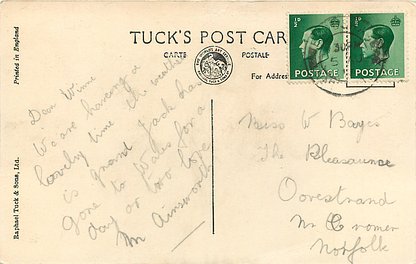 TUCK'S POST CAR
CARTE POSTALE
For Address
Printed in England
Raphael Tuck & Sons, Ltd.
½D
POSTAGE
½D
POSTAGE
Dear Winnie
We are having a
lovely time the weather
is grand Jack has
gone to Wales for a
day or two love
Mr Ainsworth
Miss W Bayes
The Pleasaunce
Overstrand
Nr Cromer
Norfolk